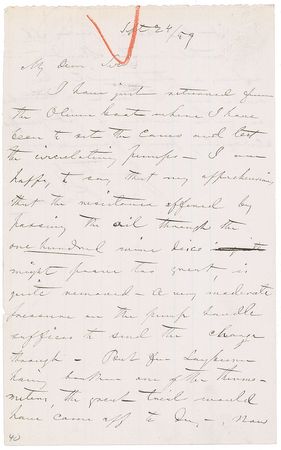 Sept 24/59
My Dear Sir
I have just returned from
the Oliver boats where I have
been to set the cams and test
the circulating pumps – I am
happy to say that my apprehensions
that the resistance offered by
passing the oil through the
one hundred
might prove too great, is
quite removed – a very moderate
pressure on the pump handle
suffices to send the charge
through – But for
having broken one of the thermo-
meters, the great trial would
have come off to day –, Now
40